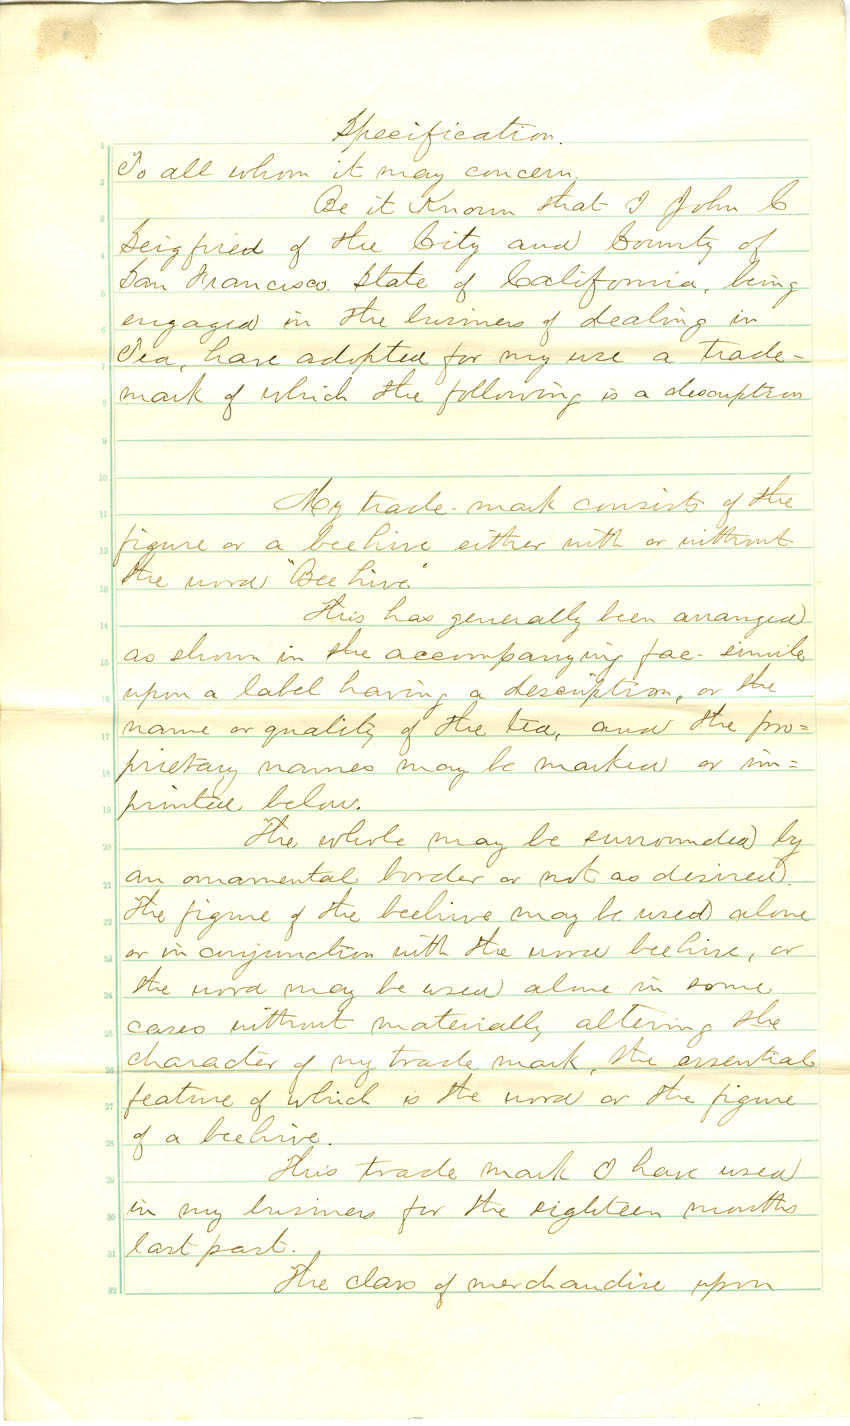 Specification.
To all whom it may concern.
Be it Known that I John C
Seigfried of the City and County of
San Francisco. State of California, being
engaged in the business of dealing in
Tea, have adopted for my use a trade-
mark of which the following is a description
My trade-mark consists of the
figure or a beehive either with or without
the word "Beehive"
This has generally been arranged
as shown in the accompanying fac-simile
upon a label having a description, or the
name or quality of the tea, and the pro=
prietary names may be marked or im=
printed below.
The whole may be surrounded by
an ornamental border or not as desired.
The figure of the beehive may be used alone
or in conjunction with the word beehive, or
the word may be used alone in some
cases without materially altering the
character of my trade mark, the essential
feature of which is the word or the figure
of a beehive.
This trade mark I have used
in my business for the eighteen months
last past.
The class of merchandise upon